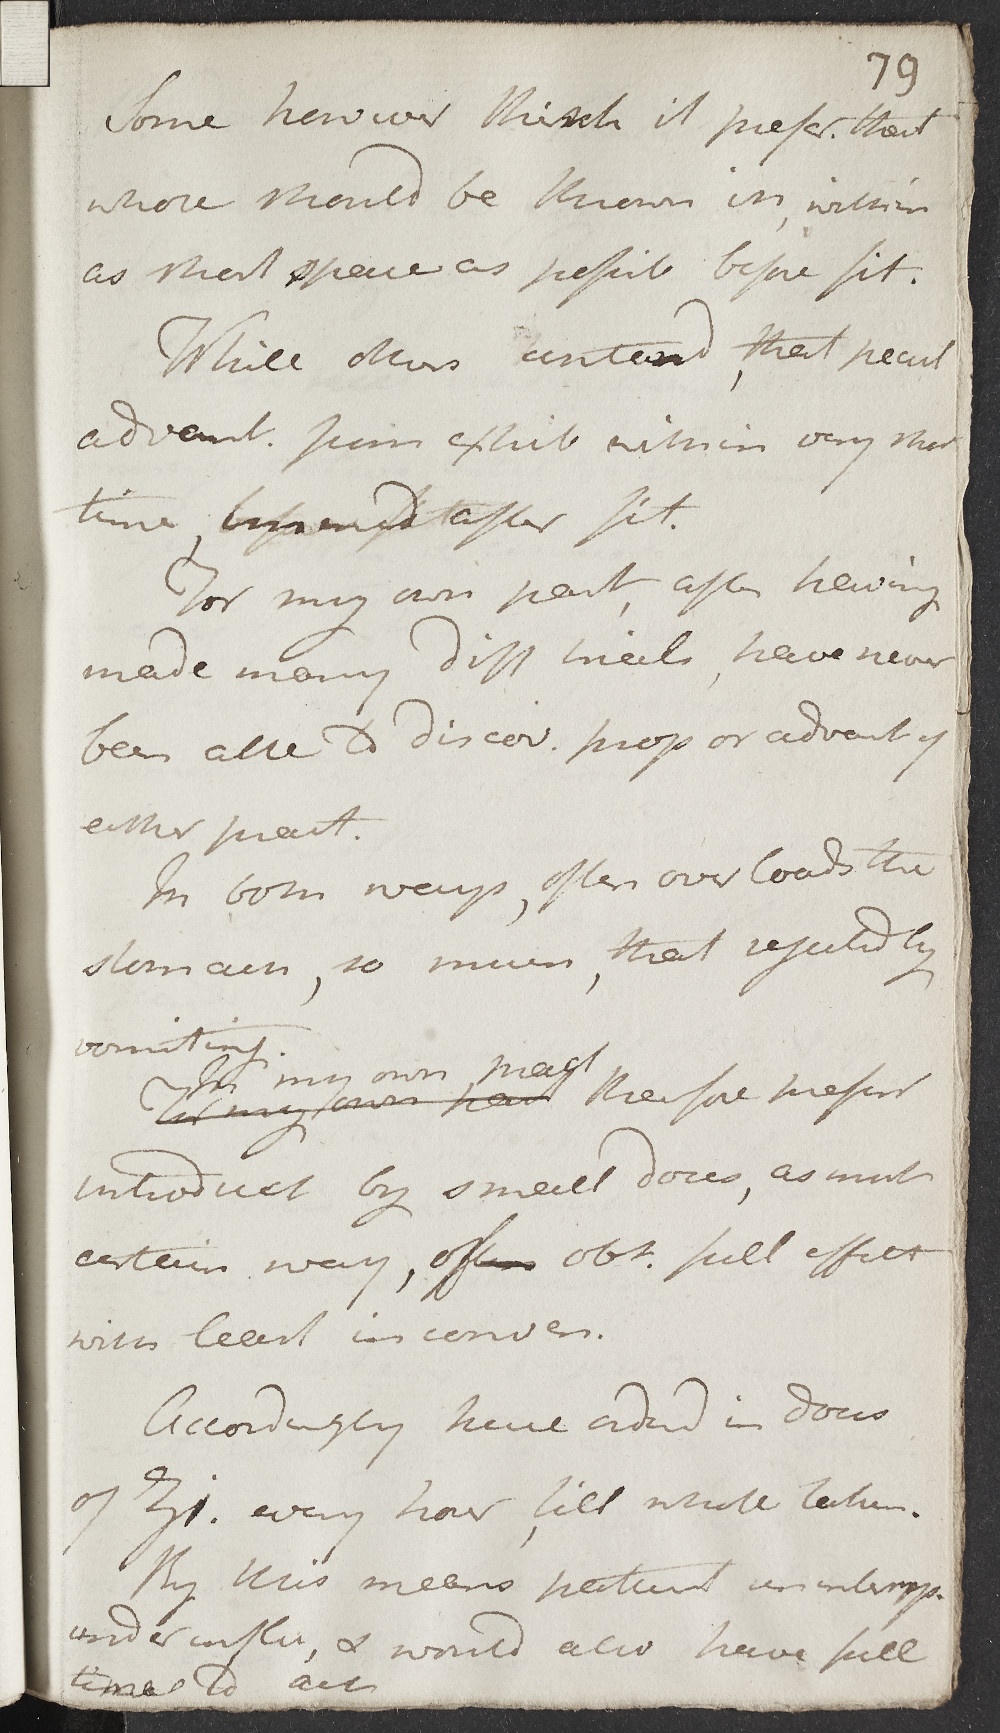 79
Some however think it prefer. that
whole should be thrown in, within
as short space as possib before fit.
While others contend, that pecul
advant. from exhib within very shor
time, after fit.
For my own part, after having
made many diff trials, have never
been able to discov. prop or advant of
either pract.
In both ways, often over loads the
stomach, so much, that rejected by
vomiting.
In my own pract
For my own part therefore prefer
introduct by small doses, as most
certain way, often obt. full effect
with least inconven.
Accordingly have ordered in doses
of ʒj. every hour, till whole taken.
By this means patient uninterrup.
under influ, & would also have full
time to act